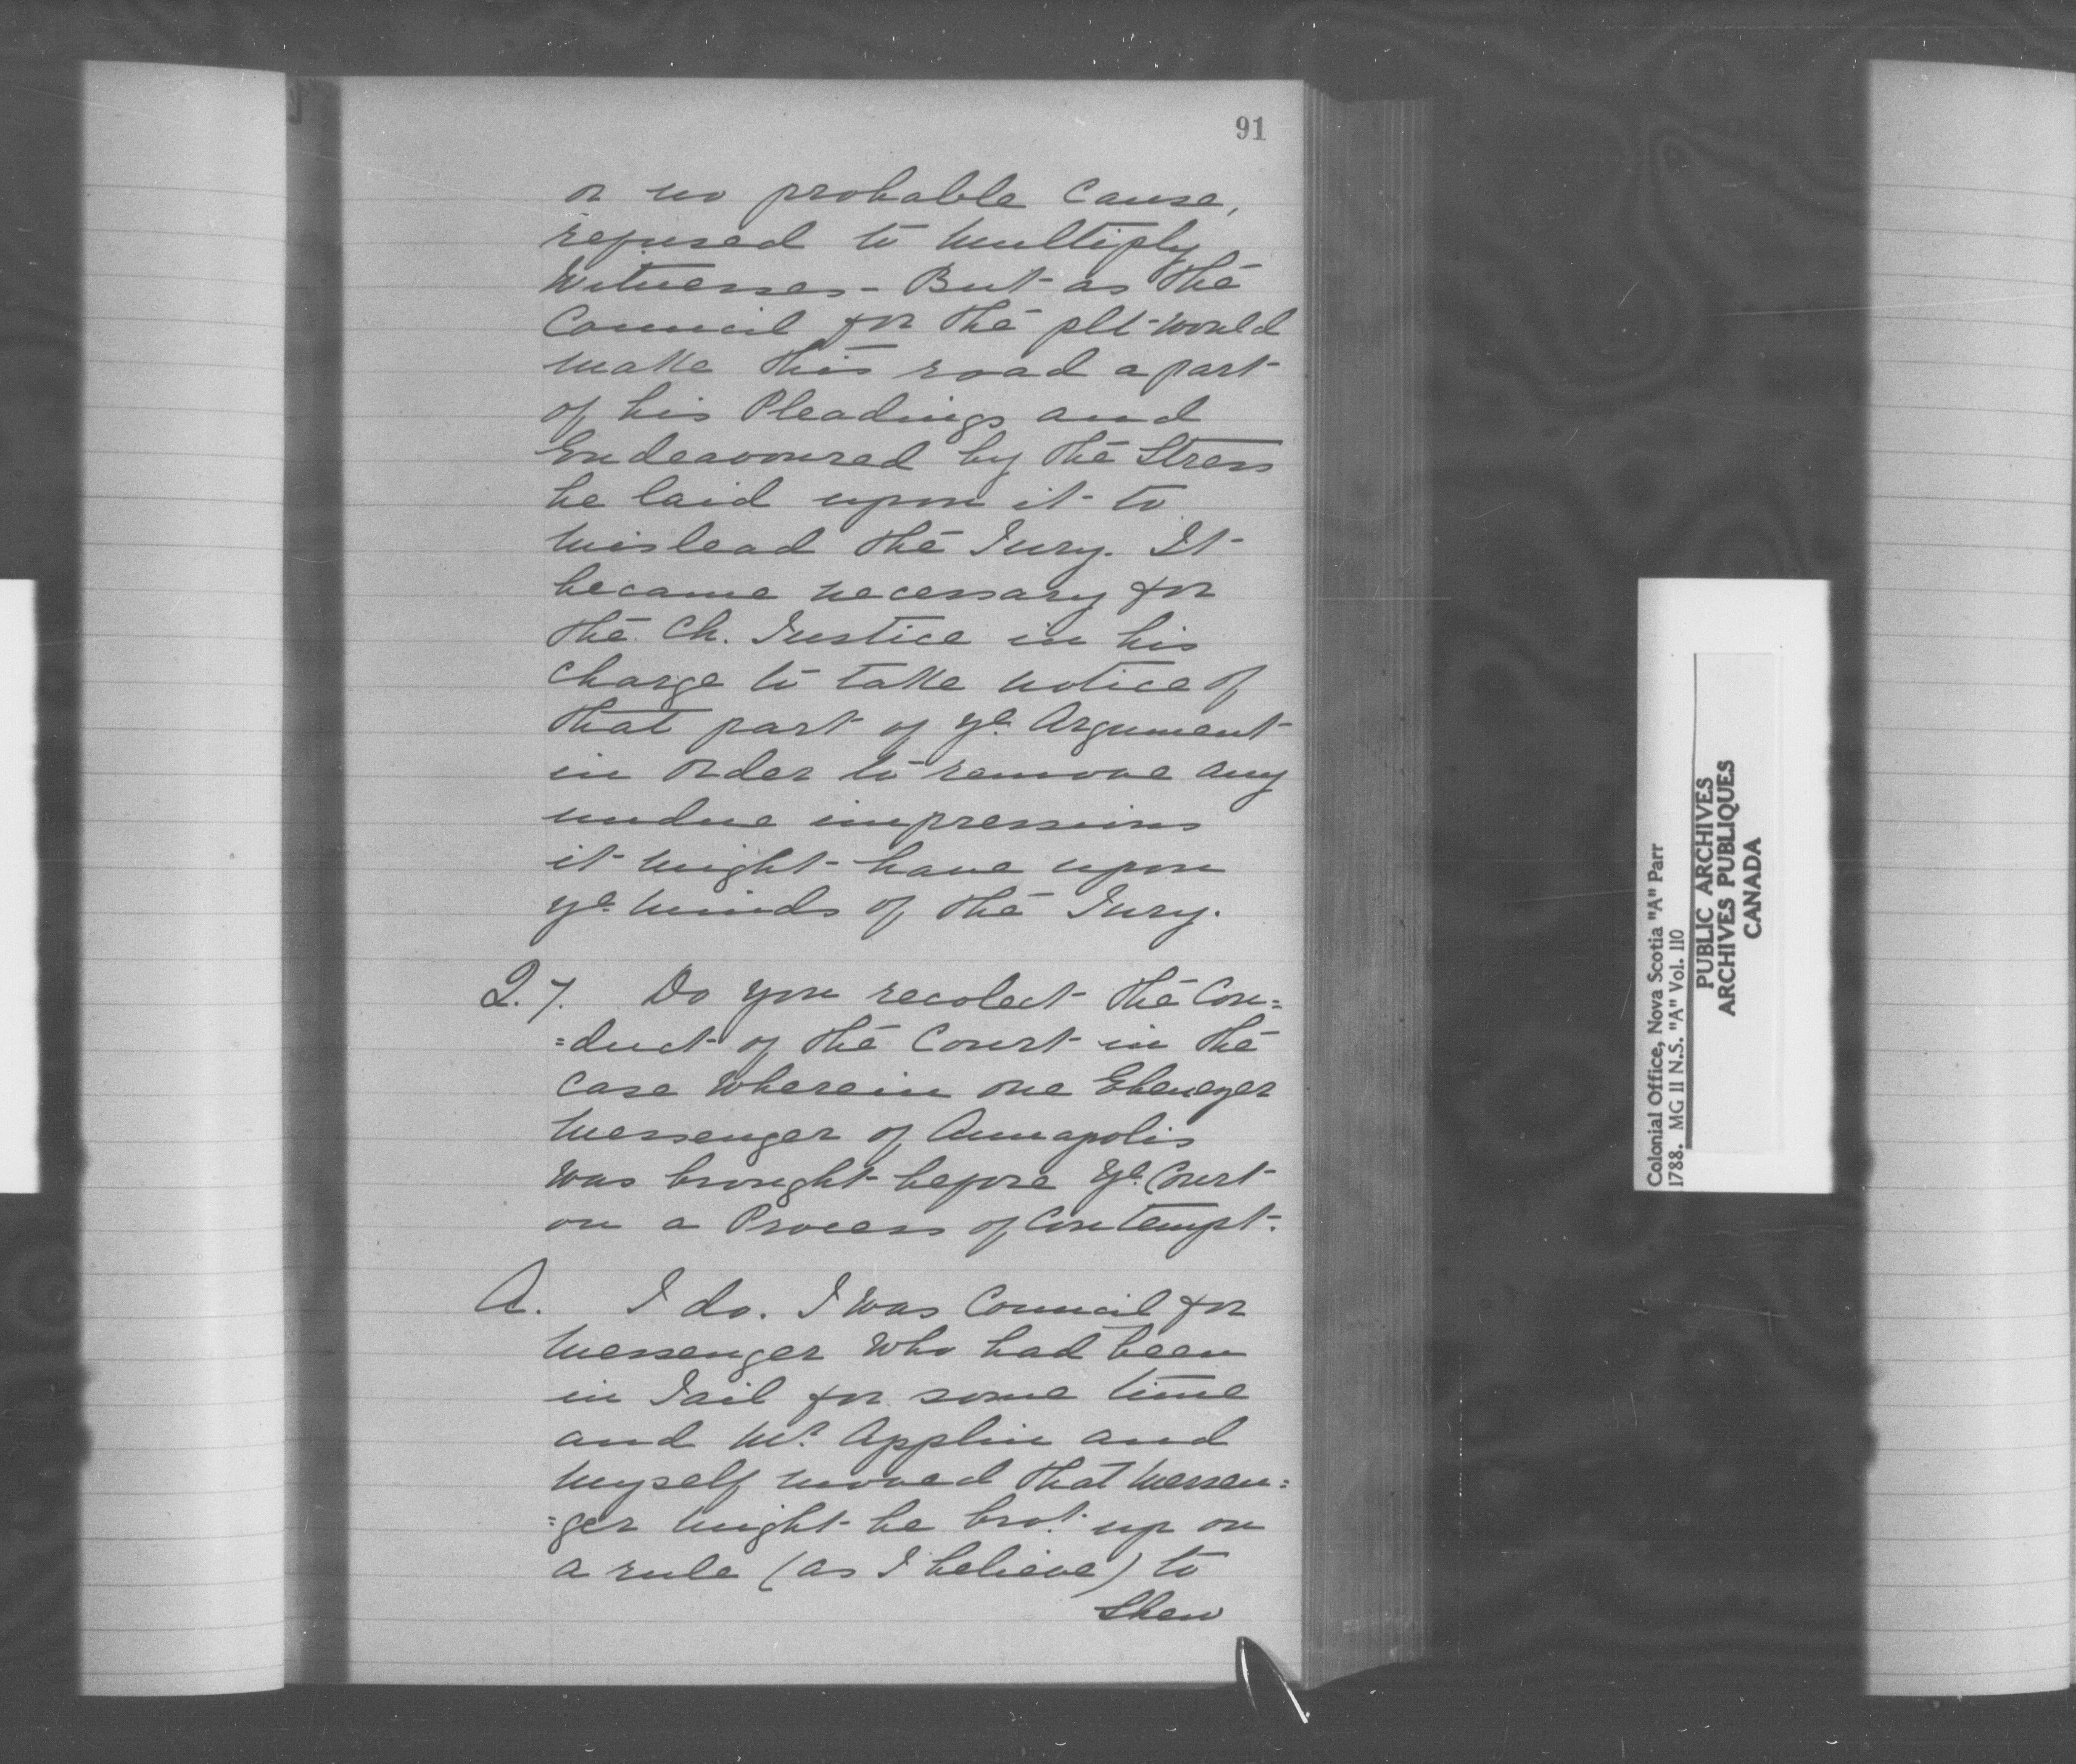 91
or no probable Cause,
refused to multiply
Witnesses - But as the
Council for the plt would
make this road a part
of his Pleadings and
Endeavoured by the Stress
he laid upon it to
mislead the Jury. It
became necessary for
the Ch. Justice in his
charge to take notice of
that part of ye Argument
in order to remove any
undue impressions
it might have upon
ye minds of the Jury.
Q. 7. Do you recolect the Con=
=duct of the Court in the
case wherein one Ebenezer
Messenger of Annapolis
was brought before ye Court
on a Process of Contempt.
A. I do. I was Council for
Messenger who had been
in Jail for some time
and Mr. Applin and
myself moved that Messen=
=ger might be brot. up on
a rule (as I believe) to
Shew
Colonial Office, Nova Scotia "A" Parr
1788. MG 11 N.S. "A" Vol. 110
PUBLIC ARCHIVES
ARCHIVES PUBLIQUES
CANADA